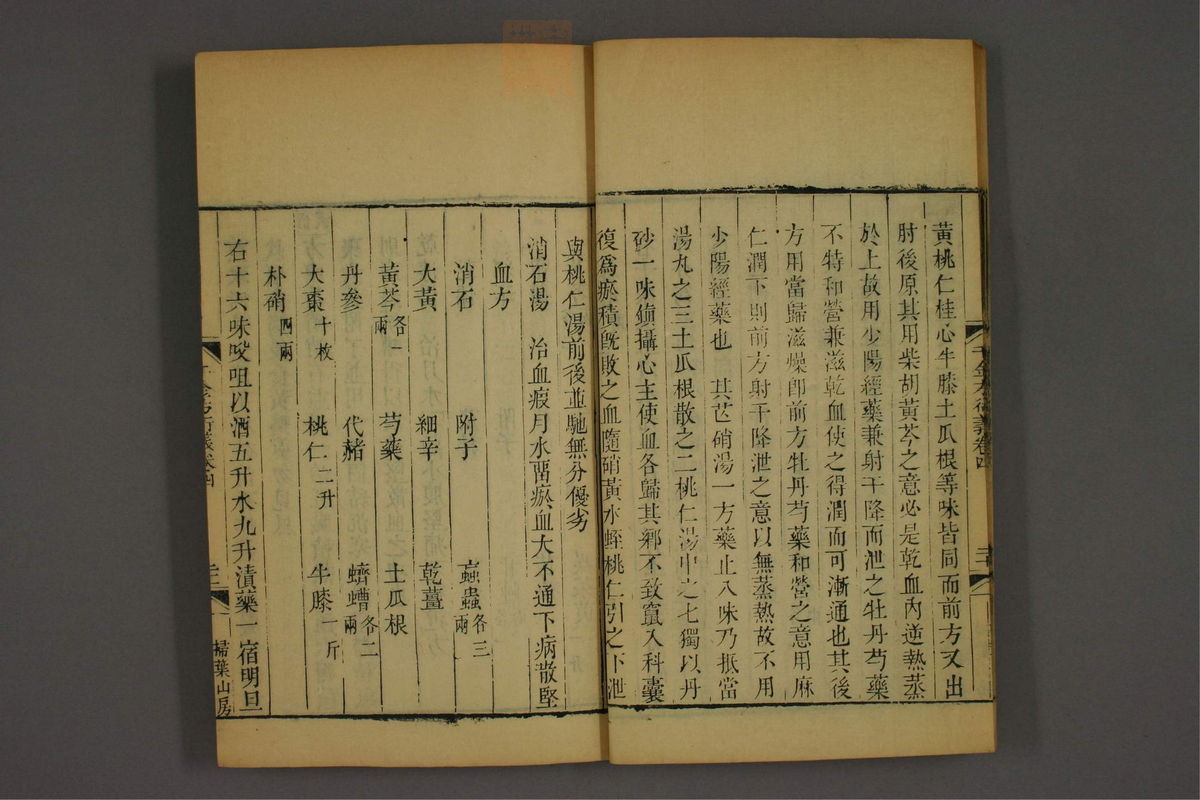 黃桃仁桂心牛膝土瓜根等味皆同而前方又出
肘後原其用柴胡黃芩之意必是乾血內逆熱蒸
於上故用少陽經藥兼射干降而泄之牡丹芍藥
不特和營兼滋乾血使之得潤而可漸通也其後
方用當歸滋燥卽前方牡丹芍藥和營之意用麻
仁潤下則前方射干降泄之意以無蒸熱故不用
少陽經藥也　其芒硝湯一方藥止八味乃抵當
湯丸之三土瓜根散之二桃仁湯中之七獨以丹
砂一味鎮攝心主使血各歸其鄉不致竄入科囊
復爲瘀積旣敗之血隨硝黃水蛭桃仁引之下泄
千金方衍義卷四
與桃仁湯前後並馳無分優劣
消石湯　治血瘕月水留瘀血大不通下病散堅
血方
消石　附子　䗪蟲各三兩
大黃　細辛　乾薑
黃芩各一兩　芍藥　土瓜根
丹參　代赭　蠐螬各二兩
大棗十枚　桃仁二升　牛膝一斤
朴硝四兩
右十六味㕮咀以酒五升水九升漬藥一宿明旦
千金方衍義卷四
掃葉山房